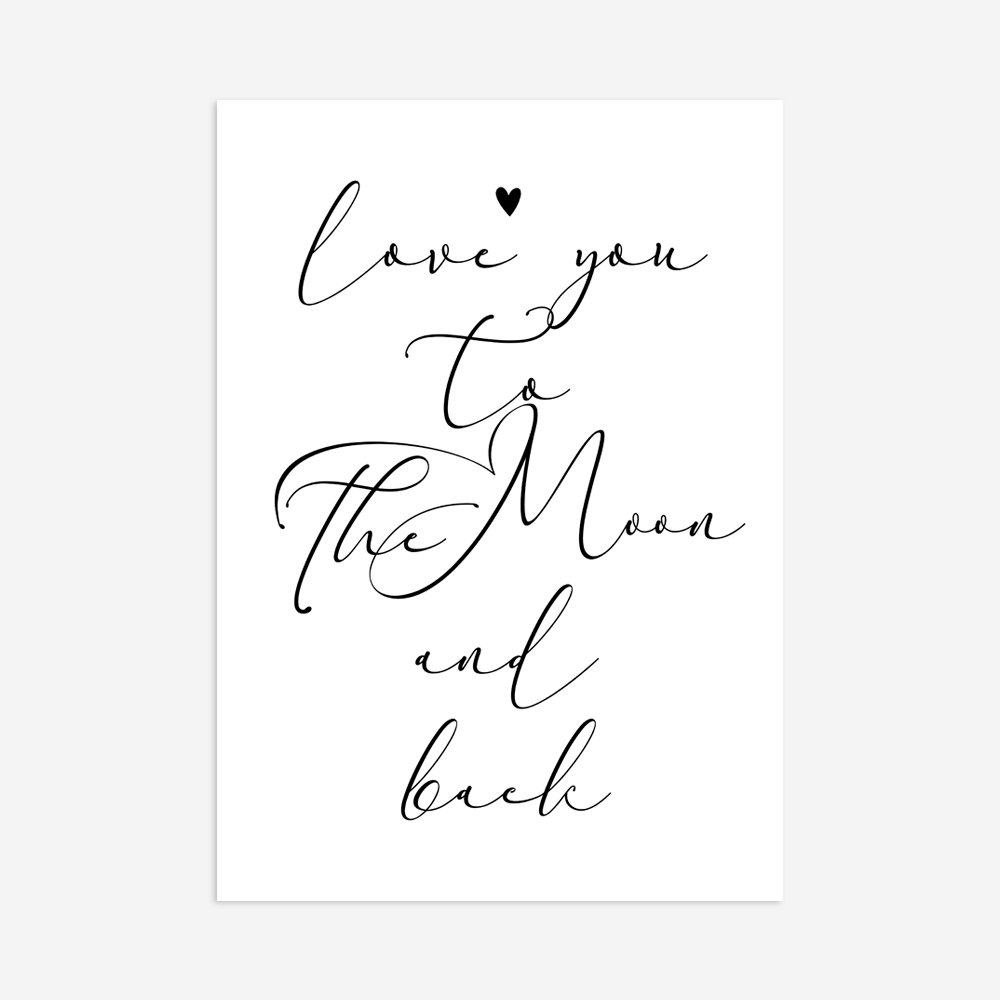 love you
to
The Moon
and
back